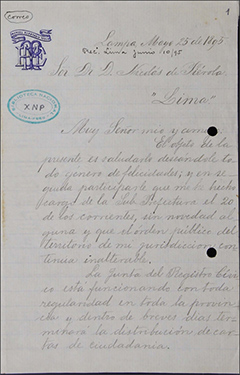 Correo
1
Lampa, Mayo 25 de 1895
Rec. Lima Junio 10/95
Sor. Dr. D. Nicolás de Piérola
"Lima"
XNP
Muy Señor mio y amo.
El objeto de la
presente es saludarle deseandole to
do genero de felicidades, y en se
guida participarle que me he hecho
cargo de la Sub Prefectura el 20
de los corrientes, sin novedad al
guna y que el orden público del
territorio de mi jurisdiccion con
tinua inalterable.
La Junta del Registro Cívi
co está funcionando con toda
regularidad en toda la provin
cia y dentro de breves dias ter
minará la distribución de car
tas de ciudadanía.